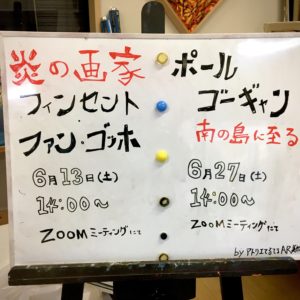 炎の画家
フィンセント
ファン・ゴッホ
6月13日(土)
14:00〜
ZOOMミーティングにて
ポール
ゴーギャン
南の島に至る
6月27日(土)
14:00〜
ZOOMミーティングにて
by アトリエてるてるAR